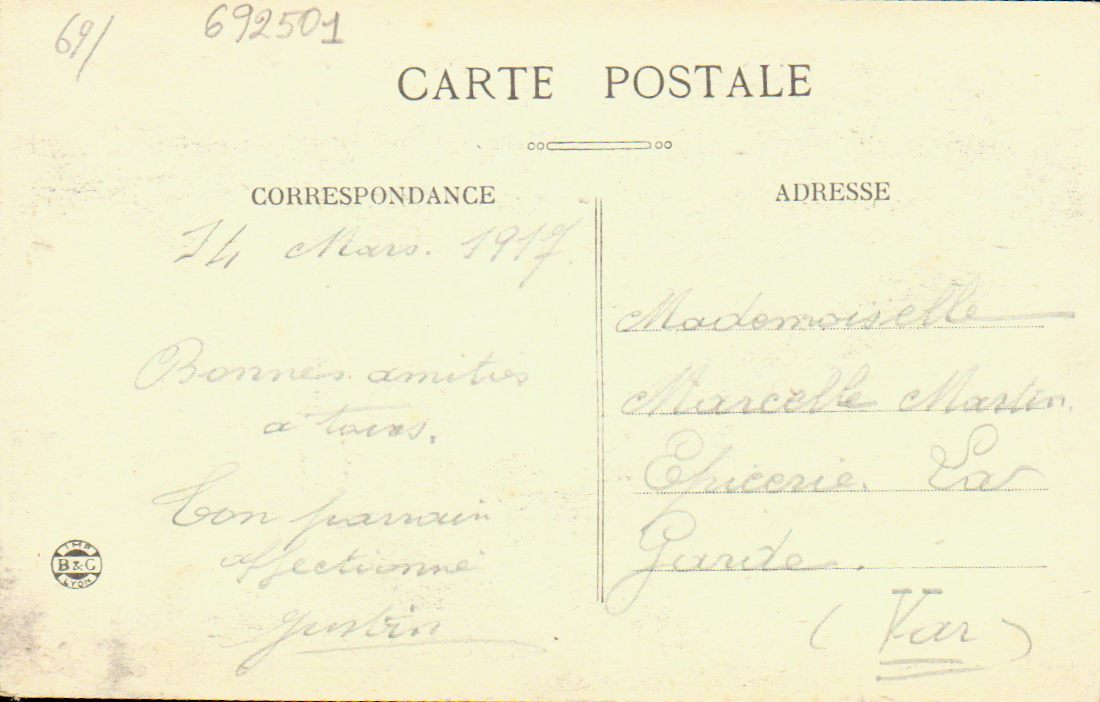 69/
692501
CARTE POSTALE
CORRESPONDANCE
14 Mars. 1917.
Bonnes amitiés
a tous.
Ton parrain
affectionné
Justin
IMP
B & G
LYON
ADRESSE
Mademoiselle
Marcelle Martin.
Epicerie. La
Garde.
(Var)